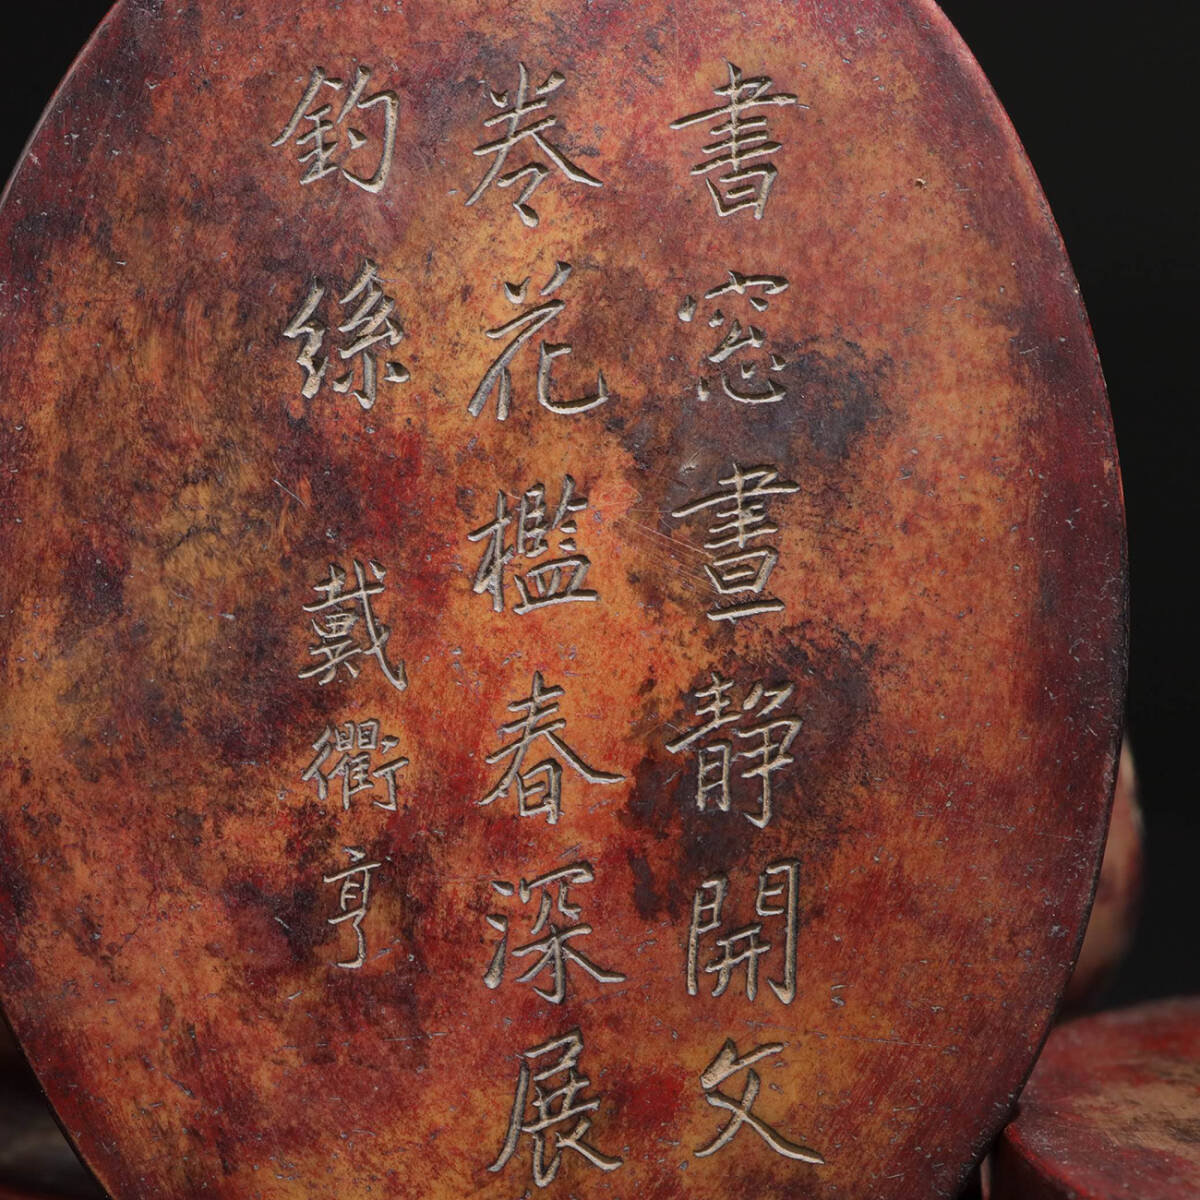 書窓晝靜開文
卷花檻春深展
釣絲 戴衢亨